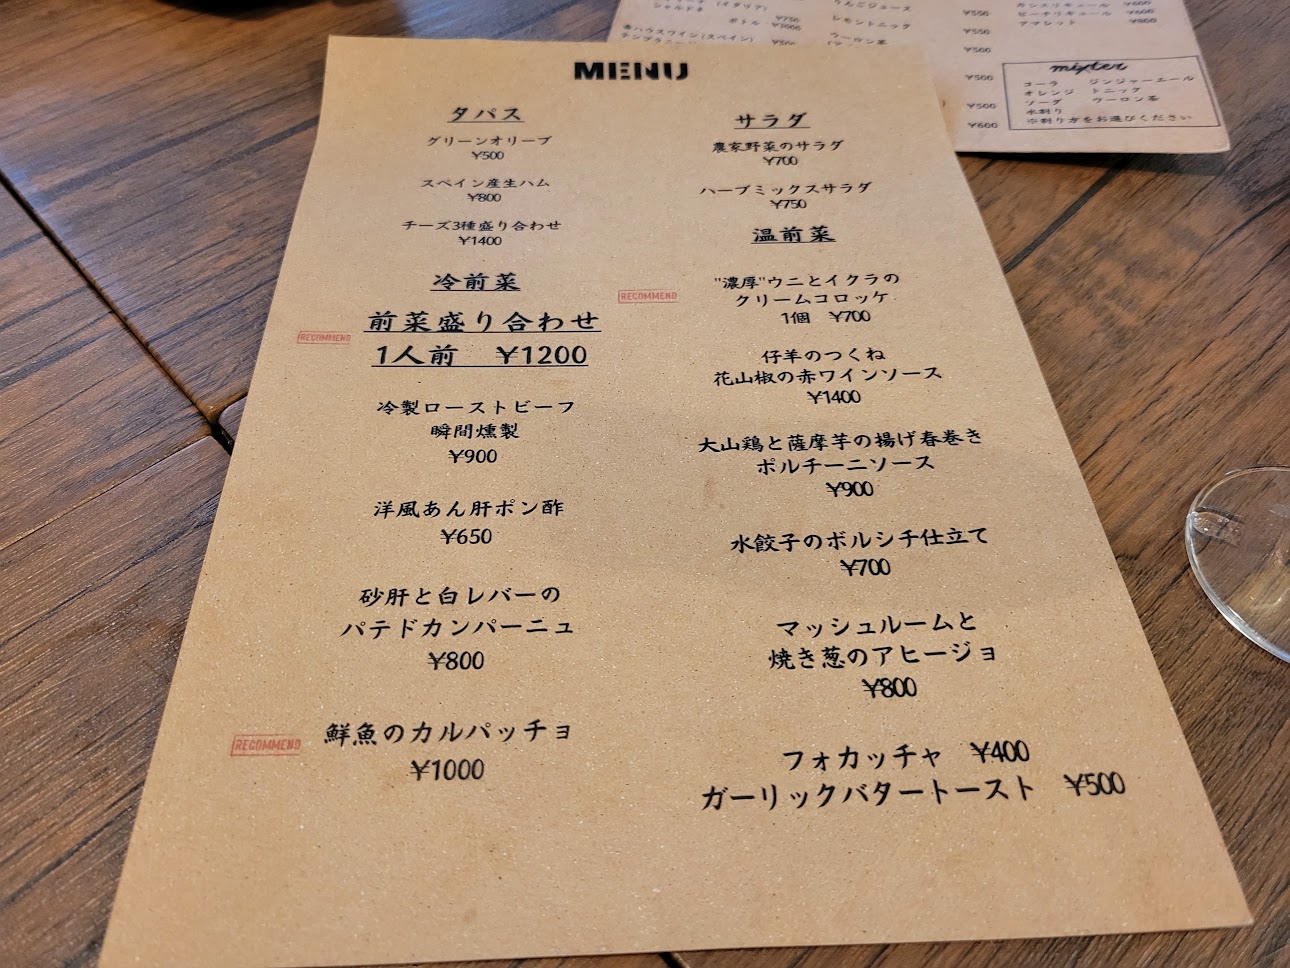 MENU
タパス
グリーンオリーブ
¥500
スペイン産生ハム
¥800
チーズ3種盛り合わせ
¥1400
冷前菜
RECOMMEND
前菜盛り合わせ
1人前 ¥1200
冷製ローストビーフ
瞬間燻製
¥900
洋風あん肝ポン酢
¥650
砂肝と白レバーの
パテドカンパーニュ
¥800
RECOMMEND
鮮魚のカルパッチョ
¥1000
サラダ
農家野菜のサラダ
¥700
ハーブミックスサラダ
¥750
温前菜
RECOMMEND
"濃厚"ウニとイクラの
クリームコロッケ
1個 ¥700
仔羊のつくね
花山椒の赤ワインソース
¥1400
大山鶏と薩摩芋の揚げ春巻き
ポルチーニソース
¥900
水餃子のボルシチ仕立て
¥700
マッシュルームと
焼き葱のアヒージョ
¥800
フォカッチャ ¥400
ガーリックバタートースト ¥500
(イタリア)
¥750
ボトル
赤ハウスワイン(スペイン)
りんごジュース
レモントニック
ウーロン茶
¥550
¥550
¥500
¥500
¥500
¥600
カシスリキュール ¥600
ピーチリキュール ¥600
アマレット ¥600
mixter
コーラ ジンジャーエール
オレンジ トニック
ソーダ ウーロン茶
水割り
※割り方をお選びください